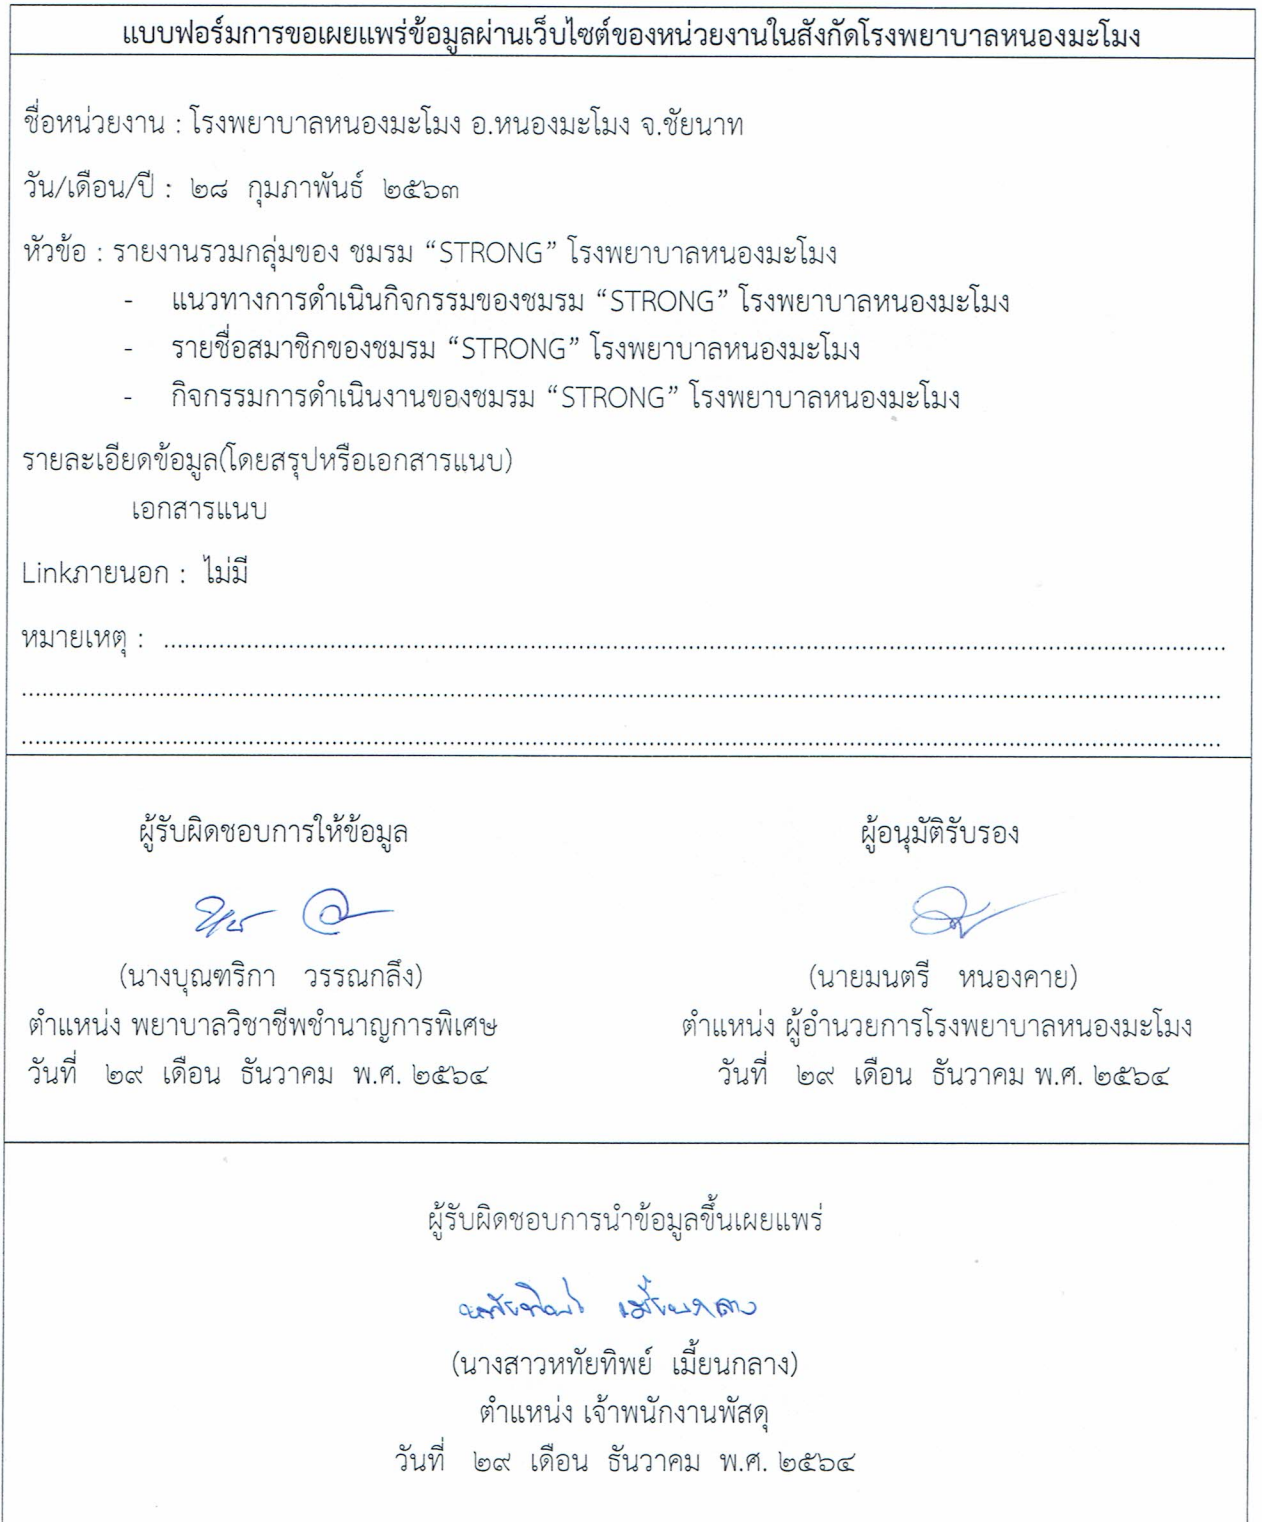 แบบฟอร์มการขอเผยแพร่ข้อมูลผ่านเว็บไซต์ของหน่วยงานในสังกัดโรงพยาบาลหนองมะโมง
ชื่อหน่วยงาน : โรงพยาบาลหนองมะโมง อ.หนองมะโมง จ.ชัยนาท
วัน/เดือน/ปี : ๒๘ กุมภาพันธ์ ๒๕๖๓
หัวข้อ : รายงานรวมกลุ่มของ ชมรม “STRONG” โรงพยาบาลหนองมะโมง
- แนวทางการดำเนินกิจกรรมของชมรม “STRONG” โรงพยาบาลหนองมะโมง
- รายชื่อสมาชิกของชมรม “STRONG” โรงพยาบาลหนองมะโมง
- กิจกรรมการดำเนินงานของชมรม “STRONG” โรงพยาบาลหนองมะโมง
รายละเอียดข้อมูล(โดยสรุปหรือเอกสารแนบ)
เอกสารแนบ
Linkภายนอก : ไม่มี
หมายเหตุ : ........................................................................
........................................................................
........................................................................
ผู้รับผิดชอบการให้ข้อมูล
(นางบุณฑริกา วรรณกลึง)
ตำแหน่ง พยาบาลวิชาชีพชำนาญการพิเศษ
วันที่ ๒๙ เดือน ธันวาคม พ.ศ. ๒๕๖๔
ผู้อนุมัติรับรอง
(นายมนตรี หนองคาย)
ตำแหน่ง ผู้อำนวยการโรงพยาบาลหนองมะโมง
วันที่ ๒๙ เดือน ธันวาคม พ.ศ. ๒๕๖๔
ผู้รับผิดชอบการนำข้อมูลขึ้นเผยแพร่
หทัยทิพย์ เมี้ยนกลาง
(นางสาวหทัยทิพย์ เมี้ยนกลาง)
ตำแหน่ง เจ้าพนักงานพัสดุ
วันที่ ๒๙ เดือน ธันวาคม พ.ศ. ๒๕๖๔